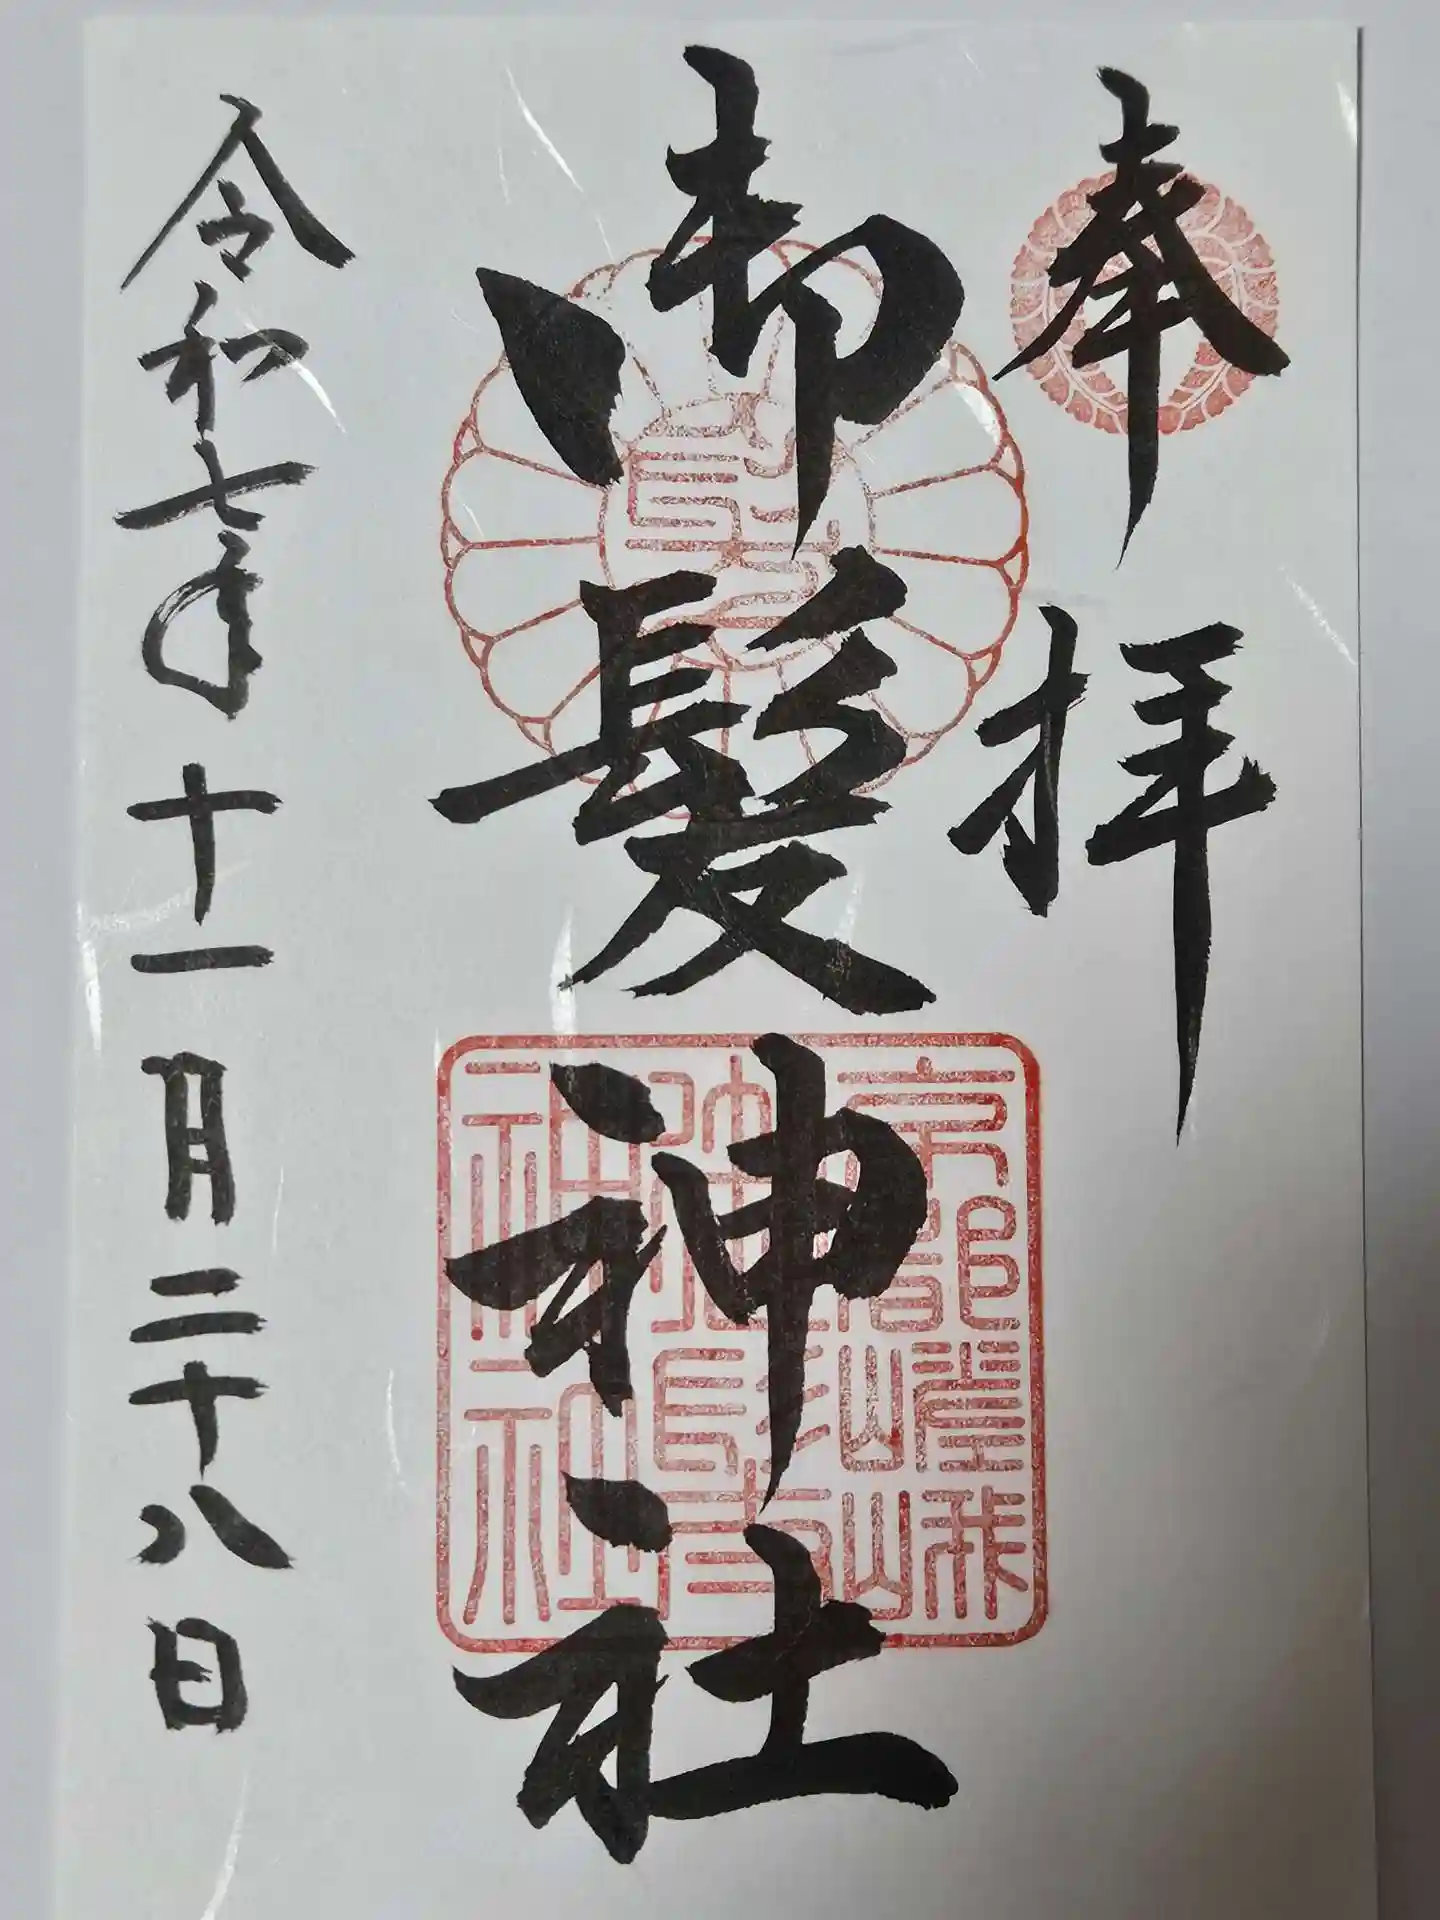 奉拝
御髪神社
令和七年十一月二十八日
京都嵯峨嵐山
御髪
神社
御髪